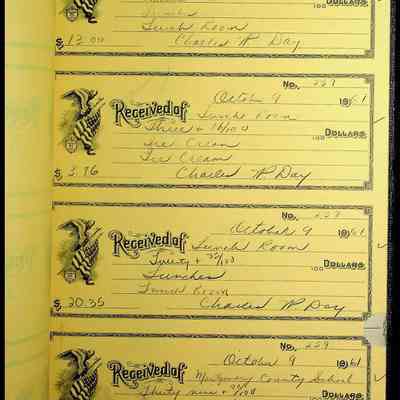 100 DOLLARS
Lunches
Lunch Room
$ 12.00 Charles W Day
No. 227
October 9 1961
Received of Lunch Room
Three + 16/100 DOLLARS
Ice Cream
Ice Cream
$ 3.96 Charles W Day
No. 228
October 9 1961
Received of Lunch Room
Twenty + 35/100 100 DOLLARS
Lunches
Lunch Room
$ 20.35 Charles W Day
No. 229
October 9 1961
Received of Montgomery County School
Thirty nine + /100 DOLLARS